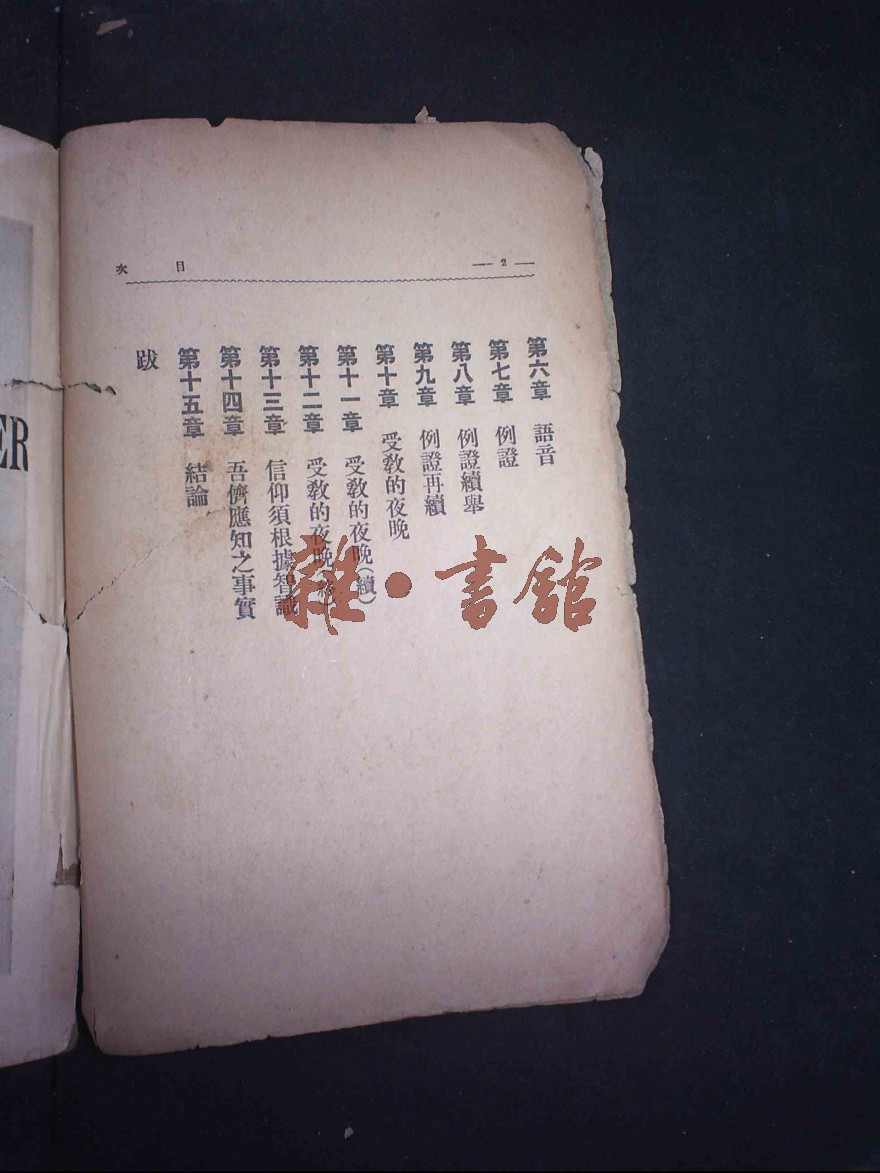 目次
— 2 —
第六章 語音
第七章 例證
第八章 例證續舉
第九章 例證再續
第十章 受教的夜晚
第十一章 受教的夜晚(續)
第十二章 受教的夜晚
第十三章 信仰須根據智識
第十四章 吾儕應知之事實
第十五章 結論
跋
ER
雜·書館